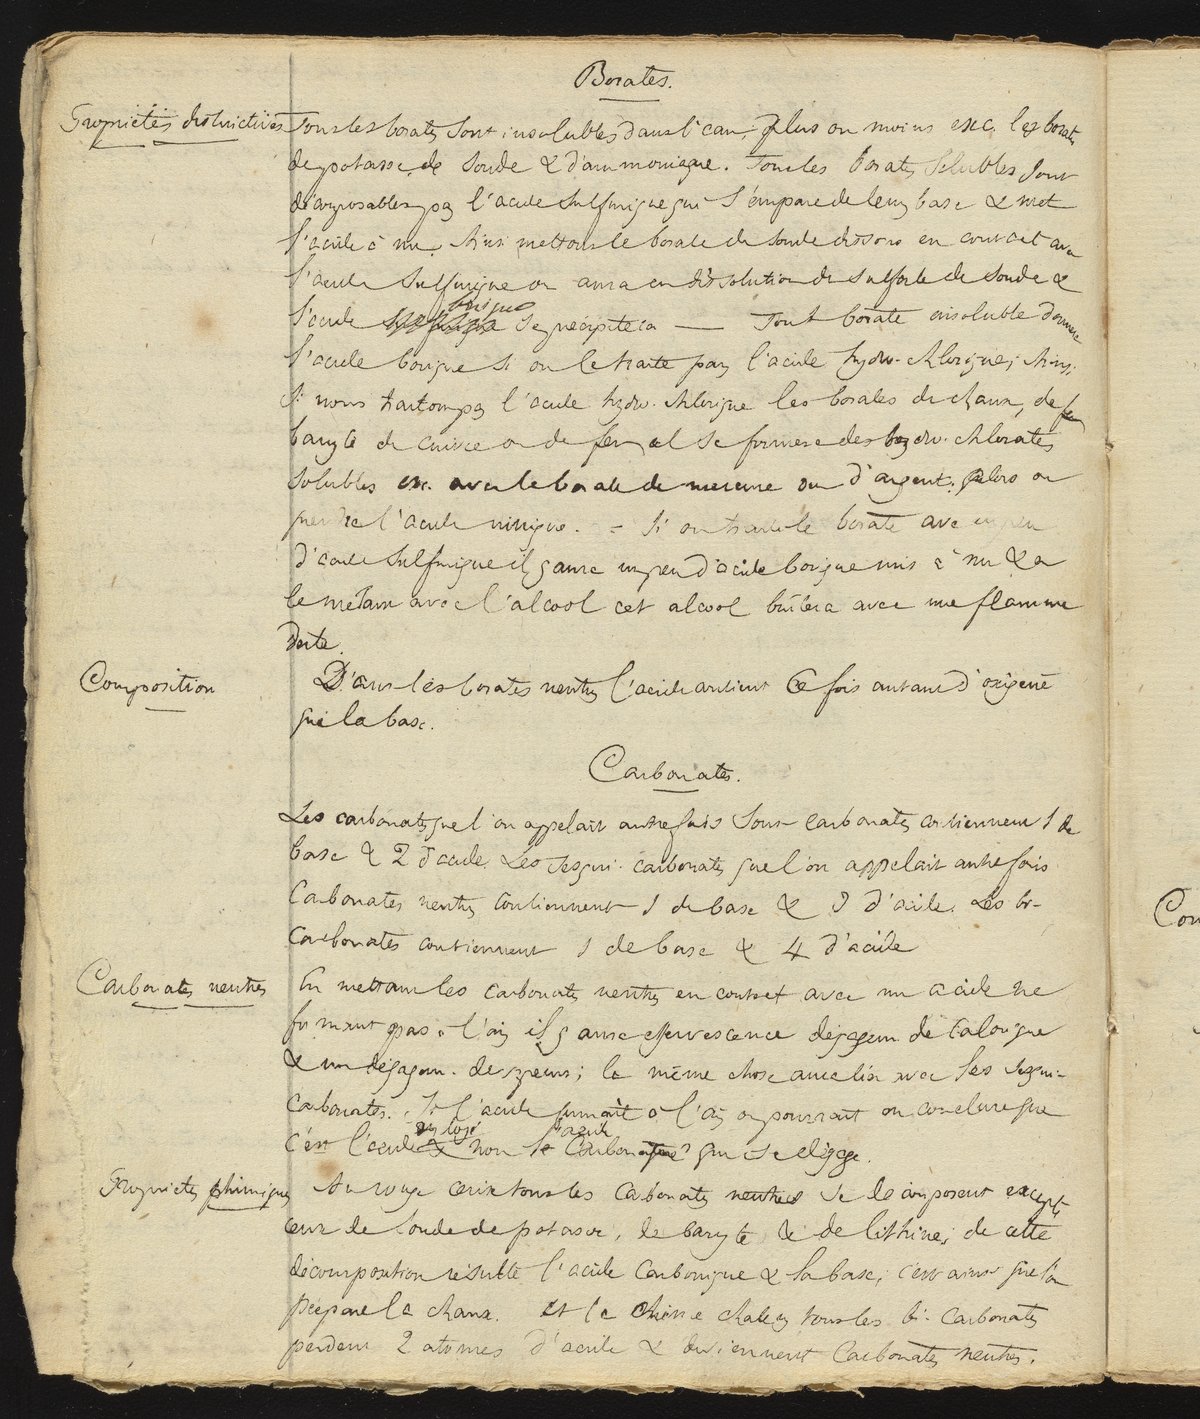 Borates.
Propriétés distinctives
Tous les borates sont insolubles dans l'eau, plus ou moins exc. les borates
de potasse, de soude & d'ammoniaque. Tous les borates solubles sont
décomposables par l'acide sulfurique qui s'empare de leur base & met
l'acide à nu. Ainsi mettons le borate de soude dissous en contact avec
l'acide sulfurique on aura en dissolution du sulfate de soude &
l'acide borique se précipitera — Tout borate insoluble donnera
l'acide borique si on le traite par l'acide hydro-chlorique; Ainsi
si nous traitons par l'acide hydro-chlorique les borates de chaux, de
baryte de cuivre ou de fer, il se formera des hydro-chlorates
solubles exc. avec le borate de mercure ou d'argent. alors on
prendra l'acide nitrique. = Si on traite le borate avec un peu
d'acide sulfurique il y aura un peu d'acide borique mis à nu & en
le mêlant avec l'alcool cet alcool brûlera avec une flamme
verte.
Composition
Dans les borates neutres l'acide contient 6 fois autant d'oxigène
que la base.
Carbonates.
Les carbonates que l'on appelait autrefois sous-carbonates contiennent 1 de
base & 2 d'acide. Les sesqui-carbonates que l'on appelait autrefois
carbonates neutres contiennent 1 de base & 3 d'acide. Les bi-
carbonates contiennent 1 de base & 4 d'acide
Carbonates neutres
En mettant les carbonates neutres en contact avec un acide ne
fumant pas à l'air il y aura effervescence dégagem. de calorique
& un dégagem. de vapeurs; la même chose aura lieu avec les sesqui-
carbonates. Si l'acide fumait à l'air on pourrait en conclure que
c'est l'acide employé & non l'acide carbonique qui se dégage.
Propriétés chimiques
Au rouge cerise tous les carbonates neutres se décomposent excepté
ceux de soude de potasse, de baryte & de lithine; de cette
décomposition résulte l'acide carbonique & la base; c'est ainsi que l'on
prépare la chaux. Et à la même chaleur tous les bi-carbonates
perdent 2 atomes d'acide & deviennent carbonates neutres.